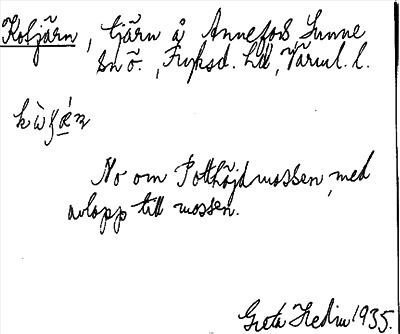 Kotjärn, tjärn å Annefors Sunne
sn ö., Fryksd. hd, Värml. l.
No om Potthöjdmossen, med
avlopp till mossen.
Greta Hedin 1935.